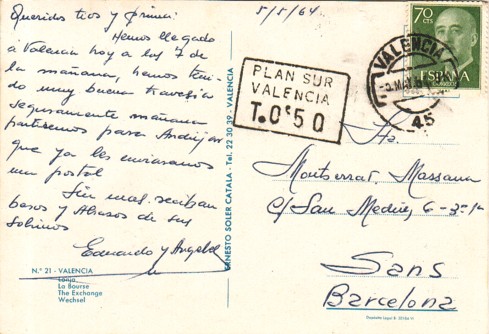 5/5/64
Queridos tios y prima:
Hemos llegado
a Valencia hoy a las 7 de
la mañana, hemos teni-
do muy buena travesia
seguramente mañana
partiremos para Andujar
que ya les enviaremos
una postal
Sin mas reciban
besos y Abrazos de sus
sobrinos
Eduardo y Angela
N.º 21 - VALENCIA
Lonja
La Bourse
The Exchange
Wechsel
ERNESTO SOLER CATALA - Tel. 22 30 39 - VALENCIA
PLAN SUR
VALENCIA
T.0'50
70
CTS
ESPAÑA
VALENCIA
45
Montserrat Massana
C/ San Medin, 6-3º-1ª
Sans
Barcelona